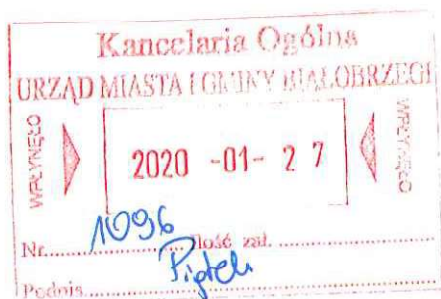 Kancelaria Ogólna
URZĄD MIASTA I GMINY BIAŁOBRZEGI
WPŁYNĘŁO 2020 -01- 27 WPŁYNĘŁO
Nr. 1096 Ilość zał.
Podpis Piątek